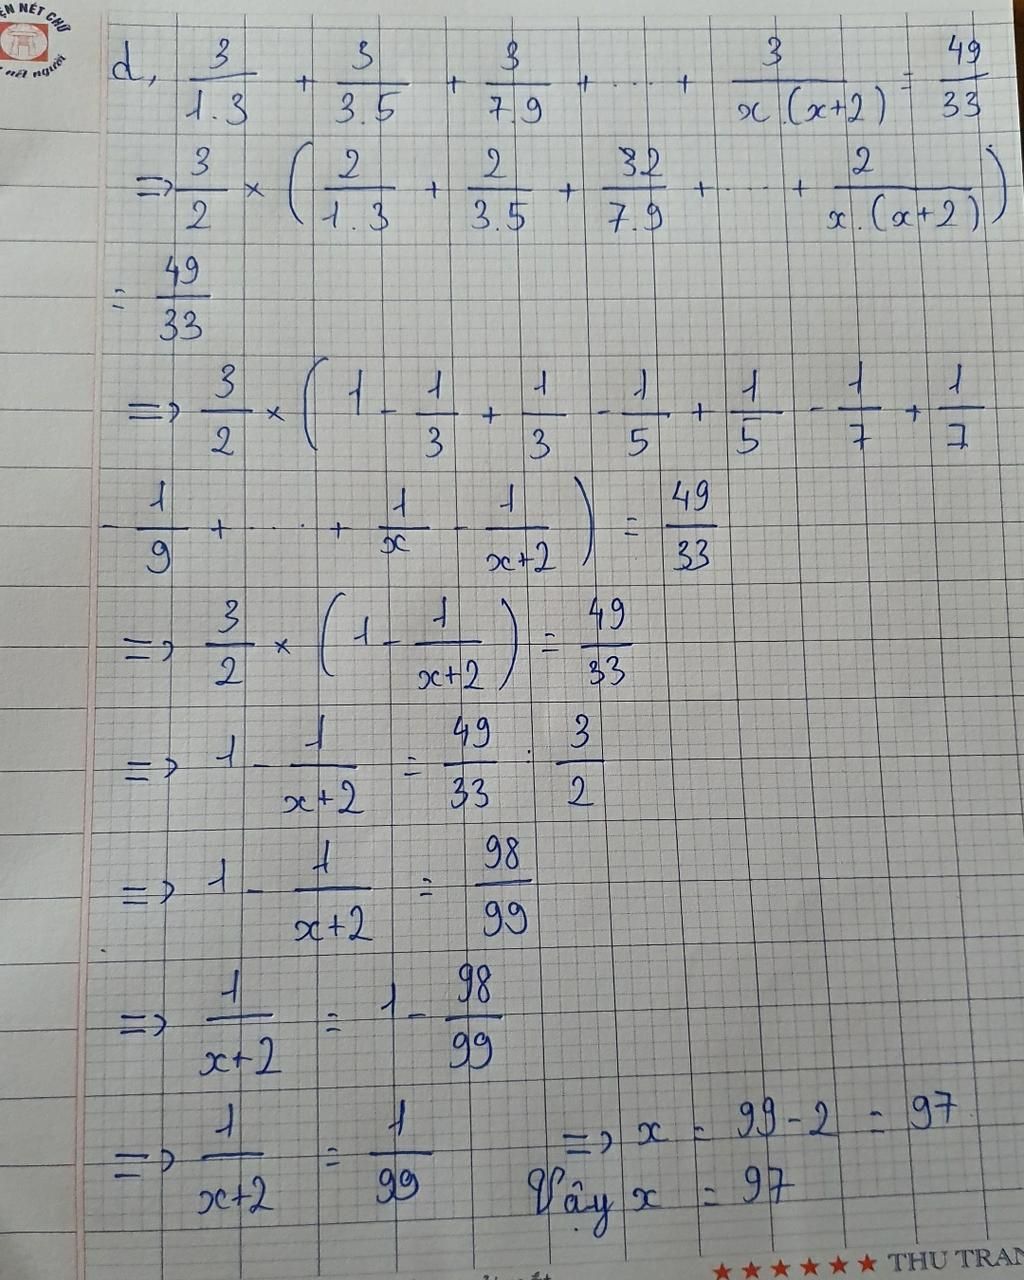 ỆN NÉT CHỮ
nết người
d, 3/1.3 + 3/3.5 + 3/7.9 + .... + 3/x.(x+2) = 49/33
=> 3/2 × ( 2/1.3 + 2/3.5 + 32/7.9 + .... + 2/x.(x+2) )
= 49/33
=> 3/2 × ( 1 - 1/3 + 1/3 - 1/5 + 1/5 - 1/7 + 1/7
- 1/9 + .... + 1/x - 1/x+2 ) = 49/33
=> 3/2 × ( 1 - 1/x+2 ) = 49/33
=> 1 - 1/x+2 = 49/33 : 3/2
=> 1 - 1/x+2 = 98/99
=> 1/x+2 = 1 - 98/99
=> 1/x+2 = 1/99 => x = 99 - 2 = 97
Vậy x = 97
★★★★★★ THU TRAN